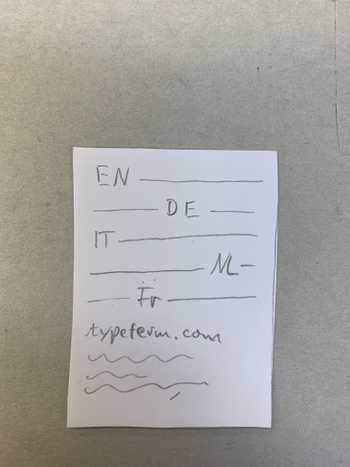 EN
DE
IT
NL
Fr
typeferm.com